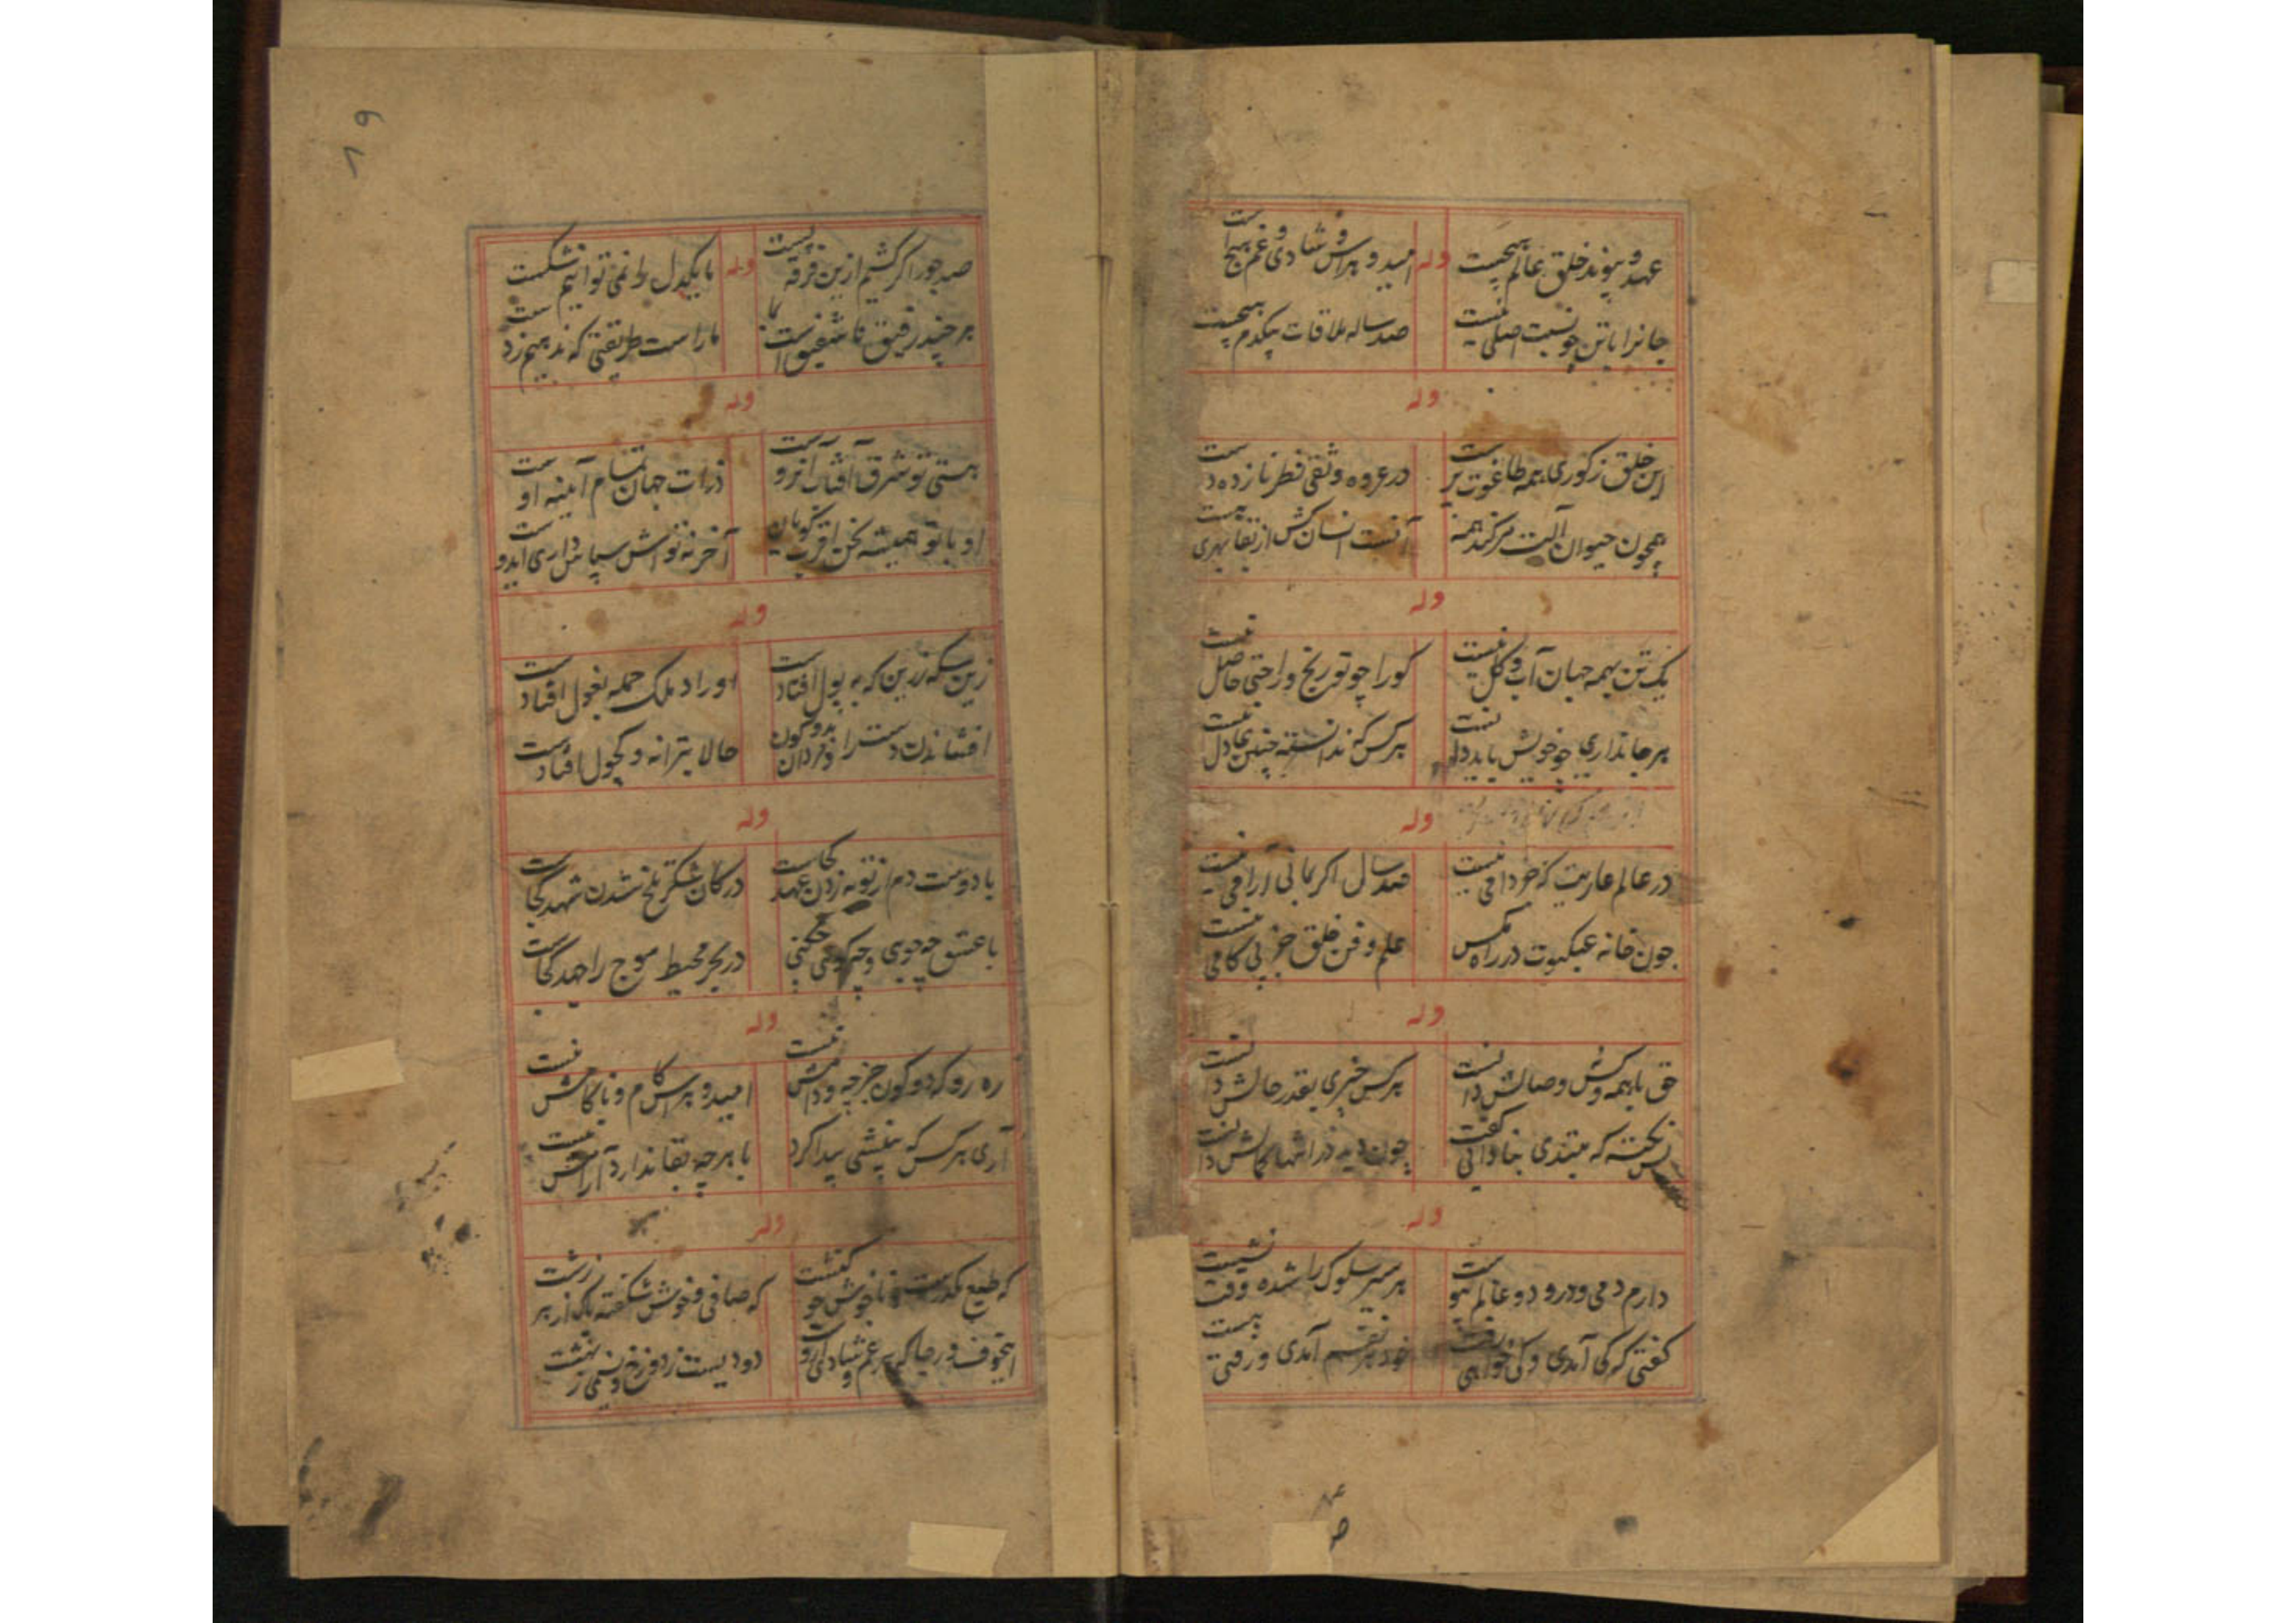 عهد و پیوند خلق عالم هیچست وله امید و هراس و شادی و غم هیچ است
جانرا باتن چو نسبت اصلی نیست صد ساله ملاقات بیکدم هیچست
وله
این خلق ز کوری همه طاغوت پرست در عروه وثقی فطر نازده دست
همچون حیوان آلت مرکند همه آنست انسان کش از بقا بهری هست
وله
یک تن بهمه جهان آب و گل نیست کورا چو تو رنج و راحتی حاصل نیست
هر جانداری چو خویش باید دانست هر کس که ندانسته چنین عادل نیست
وله
در عالم عاریت که خود دامی نیست صد سال اگر بمانی آرامی نیست
چون خانه عنکبوت در راه مگس علم و فن خلق جز پی کامی نیست
وله
حق با همه و کس وصالش دانست هر کس خبری بقدر حالش دانست
بس نکته که مبتدی بنادانی گفت چون دید در انتها کمالش دانست
وله
دارم دمی و درو دو عالم پیوست هر سیر سلوک را شده وقت نشست
گفتی که کی آمدی و کی خواهی رفت خود هر نفسم آمدی و رفتی هست
صد جور اگر کشیم ازین فرقه پست وله ما یکدل را نمی توانیم شکست
هر چند رفیق نا شفیق است بما ما راست طریقتی که ندهیم ز دست
وله
هستی تو شرق آفتاب آنروست ذرات جهان تمام آیینه اوست
او با تو همیشه نحن اقرب گویان آخر نه تواش سپاس داری ایدوست
وله
زین سکه زرین که به پول افتادست اوراد ملک جمله بغول افتادست
افشاندن دست را حالا بترانه و کچول افتادست
وله
با دوست دم از توبه زدن عهد کجاست در کان شکر تلخ شدن شهد کجاست
با عشق چه جویی و چه گویی چکنی در بحر محیط موج را جهد کجاست
وله
ره رو که دو کون جز چه و دامش نیست امید و هراس کام و ناکامش نیست
آری هر کس که بینشی پیدا کرد با هر چه بقا ندارد آرامش نیست
وله
که طبع مکدرست و ناخوش چو کنشت که صافی و خوش شکفته پاک از هر زشت
اینخوف و رجا که هر غم و شادی ازوست دودیست ز دوزخ و نسیمی ز بهشت